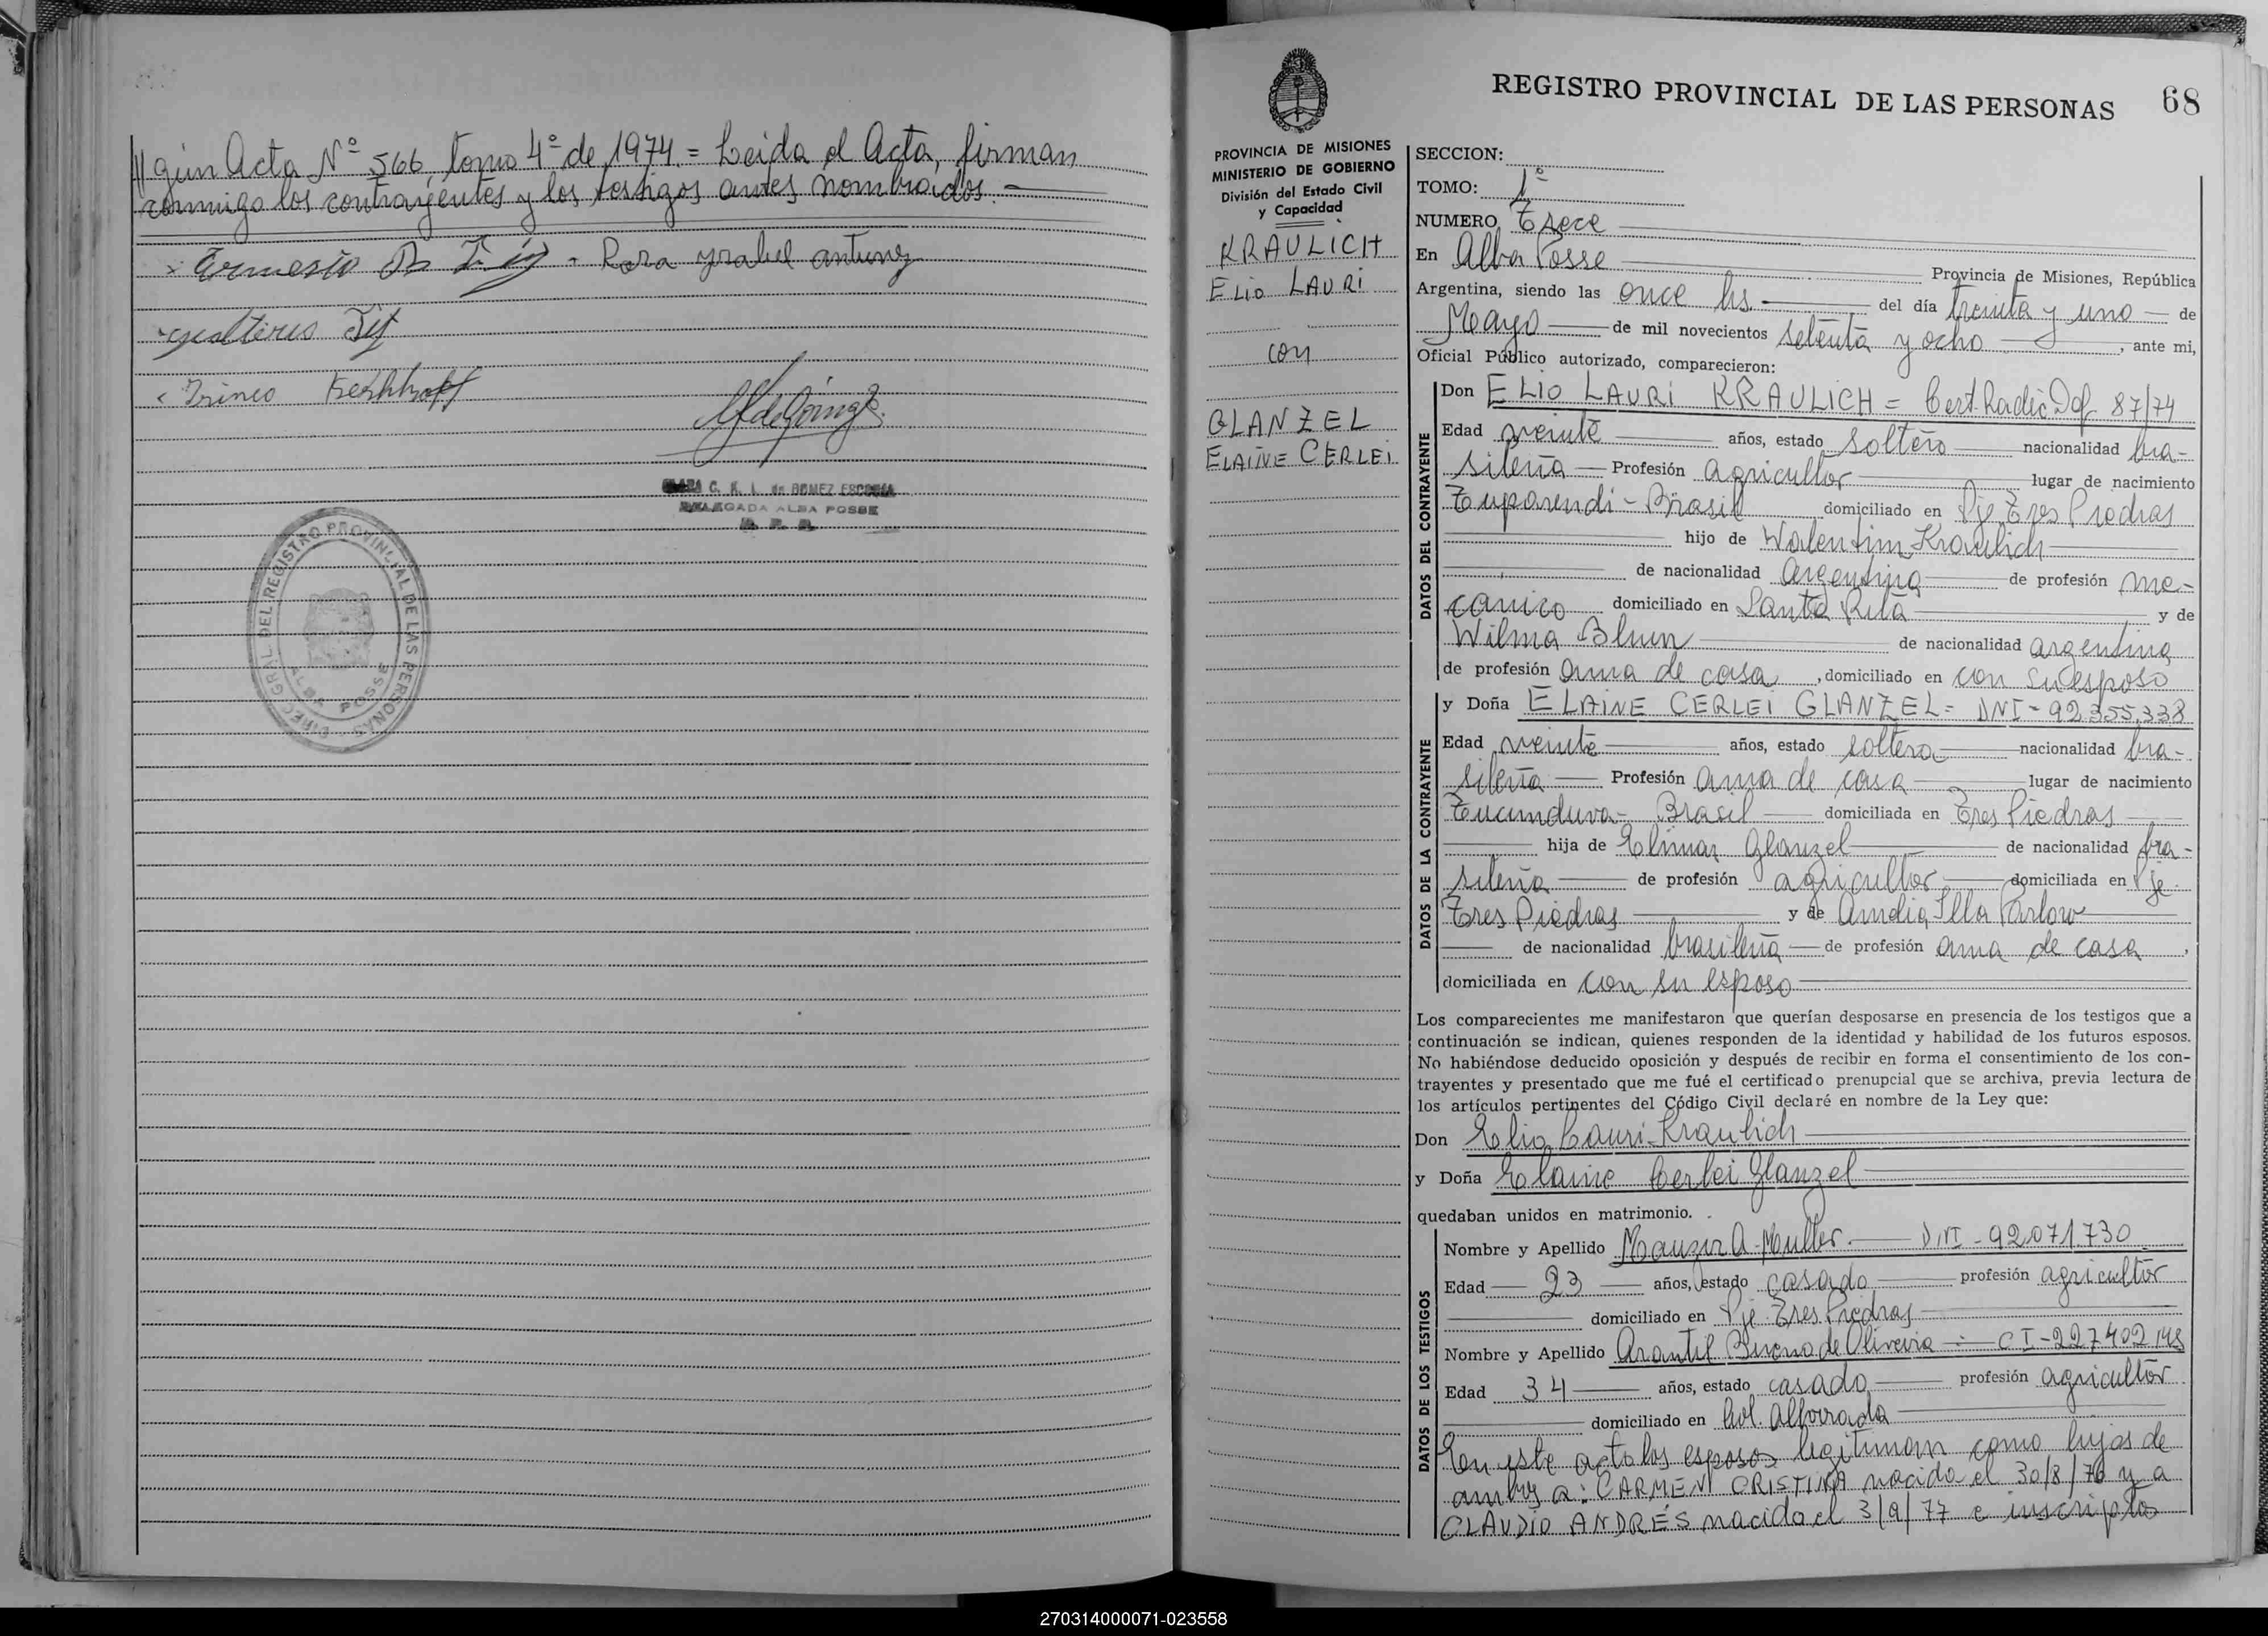 //gún Acta Nº 566, tomo 4º de 1974.= Leida el Acta, firman
conmigo los contrayentes y los testigos antes nombrados.—
Rosa Ysabel Antunez
Irineo Kerkhoff
C. K. L. de GOMEZ ESCOBIA
DELEGADA ALBA POSSE
DIREC. GRAL. DEL REGISTRO PROVINCIAL DE LAS PERSONAS
ALBA POSSE
REGISTRO PROVINCIAL DE LAS PERSONAS 68
PROVINCIA DE MISIONES
MINISTERIO DE GOBIERNO
División del Estado Civil
y Capacidad
KRAULICH
ELIO LAURI
con
GLANZEL
ELAINE CERLEI
SECCION:
TOMO: 1º
NUMERO Trece
En Alba Posse Provincia de Misiones, República
Argentina, siendo las once hs. del día treinta y uno de
Mayo de mil novecientos setenta y ocho, ante mi,
Oficial Público autorizado, comparecieron:
DATOS DEL CONTRAYENTE
Don ELIO LAURI KRAULICH = Cert. Radic. Def 87/74
Edad veinte años, estado soltero nacionalidad bra-
sileña Profesión agricultor lugar de nacimiento
Tuparendi - Brasil domiciliado en Pje Tres Piedras
hijo de Walentim Kraulich
de nacionalidad Argentina de profesión me-
canico domiciliado en Santa Rita y de
Wilma Blum de nacionalidad argentina
de profesión ama de casa, domiciliado en con su esposo
DATOS DE LA CONTRAYENTE
y Doña ELAINE CERLEI GLANZEL = DNI - 92.355.338
Edad veinte años, estado soltera nacionalidad bra-
sileña Profesión ama de casa lugar de nacimiento
Tucunduva - Brasil domiciliada en Tres Piedras
hija de Elimar Glanzel de nacionalidad bra-
sileña de profesión agricultor domiciliada en Pje.
Tres Piedras y de Amelia Illa Parlow
de nacionalidad brasileña de profesión ama de casa,
domiciliada en con su esposo
Los comparecientes me manifestaron que querían desposarse en presencia de los testigos que a
continuación se indican, quienes responden de la identidad y habilidad de los futuros esposos.
No habiéndose deducido oposición y después de recibir en forma el consentimiento de los con-
trayentes y presentado que me fué el certificado prenupcial que se archiva, previa lectura de
los artículos pertinentes del Código Civil declaré en nombre de la Ley que:
Don Elio Lauri Kraulich
y Doña Elaine Cerlei Glanzel
quedaban unidos en matrimonio.
DATOS DE LOS TESTIGOS
Nombre y Apellido A. Muller. DNI - 92.071.730
Edad 23 años, estado casado profesión agricultor
domiciliado en Pje. Tres Piedras
Nombre y Apellido Arantil Bueno de Oliveira CI - 227402
Edad 34 años, estado casado profesión agricultor
domiciliado en Col. Alborrada
En este acto los esposos legitiman como hijos de
ambos a: CARMEN CRISTINA nacida el 30/8/76 y a
CLAUDIO ANDRÉS nacido el 3/9/77 e inscripto
270314000071-023558